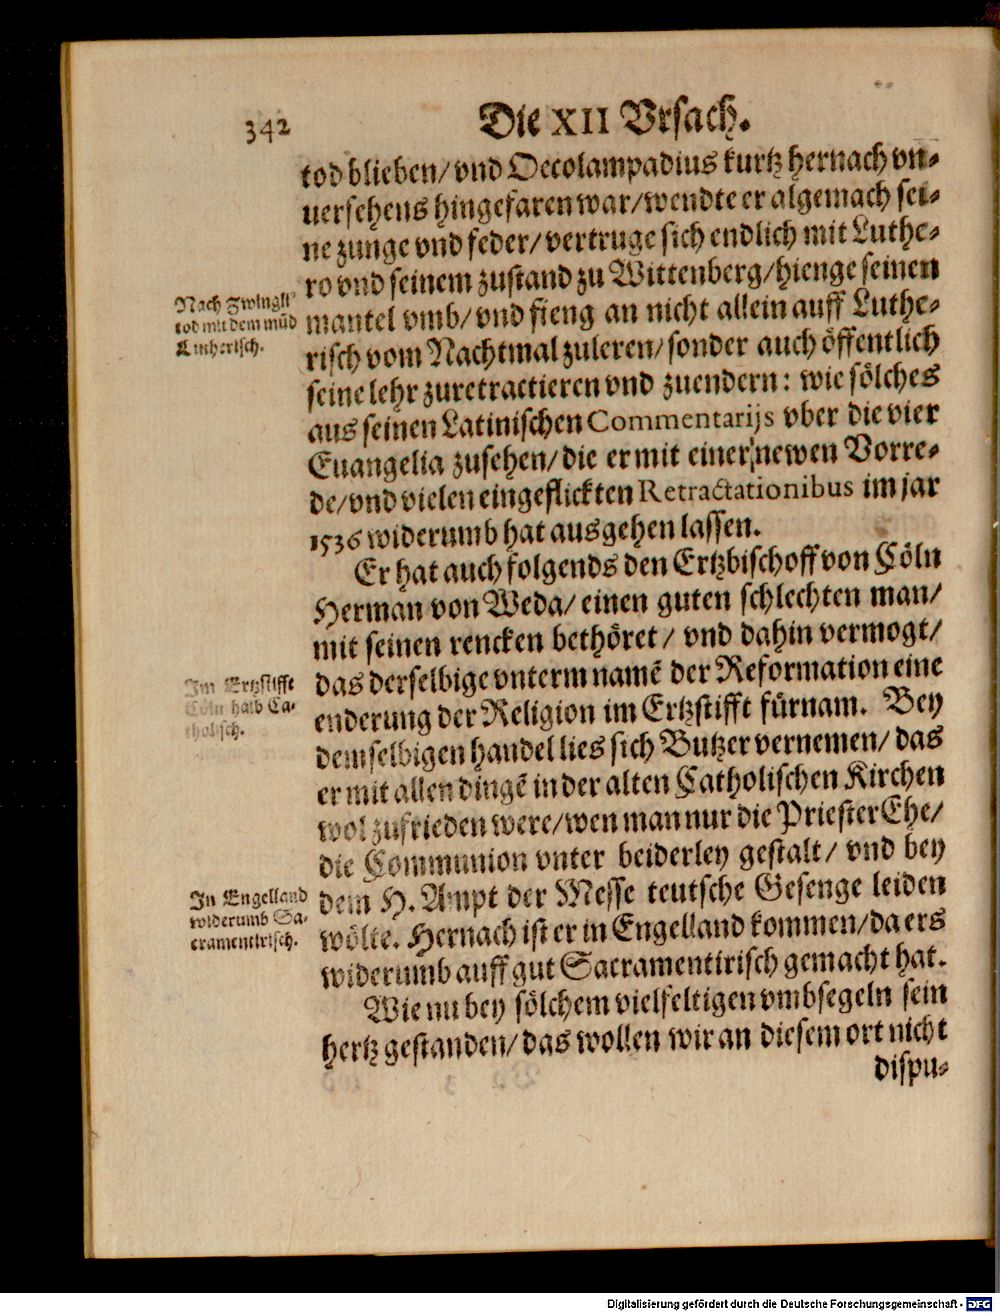 342
Die XII Vrsach.
tod blieben/ vnd Oecolampadius kurtz hernach vn-
uersehens hingefaren war/ wendte er algemach sei-
ne zunge vnd feder/ vertruge sich endlich mit Luthe-
ro vnd seinem zustand zu Wittenberg/ hienge seinen
mantel vmb/ vnd fieng an nicht allein auff Luthe-
risch vom Nachtmal zuleren/ sonder auch öffentlich
seine lehr zuretractieren vnd zuendern: wie sölches
aus seinen Latinischen Commentarijs vber die vier
Euangelia zusehen/ die er mit einer newen Vorre-
de/ vnd vielen eingeflickten Retractationibus im jar
1536 widerumb hat ausgehen lassen.
Nach Zwingli
tod mit dem mūd
Lutherisch.
Er hat auch folgends den Ertzbischoff von Cöln
Herman von Weda/ einen guten schlechten man/
mit seinen rencken bethöret/ vnd dahin vermogt/
das derselbige vnterm namē der Reformation eine
enderung der Religion im Ertzstifft fürnam. Bey
demselbigen handel lies sich Butzer vernemen/ das
er mit allen dingē in der alten Catholischen Kirchen
wol zufrieden were/ wen man nur die Priester Ehe/
die Communion vnter beiderley gestalt/ vnd bey
dem H. Ampt der Messe teutsche Gesenge leiden
wölte. Hernach ist er in Engelland kommen/ da ers
widerumb auff gut Sacramentirisch gemacht hat.
Im Ertzstifft
Cöln halb Ca-
tholisch.
In Engelland
widerumb Sa-
cramentirisch.
Wie nu bey sölchem vielfeltigen vmbsegeln sein
hertz gestanden/ das wollen wir an diesem ort nicht
dispu-
Digitalisierung gefördert durch die Deutsche Forschungsgemeinschaft - DFG